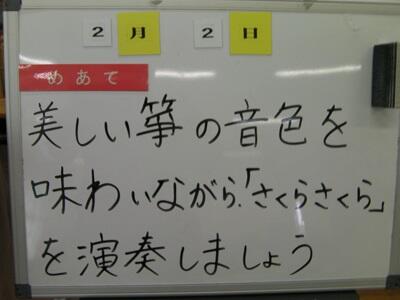 2月2日
めあて
美しい箏の音色を
味わいながら、「さくらさくら」
を演奏しましょう